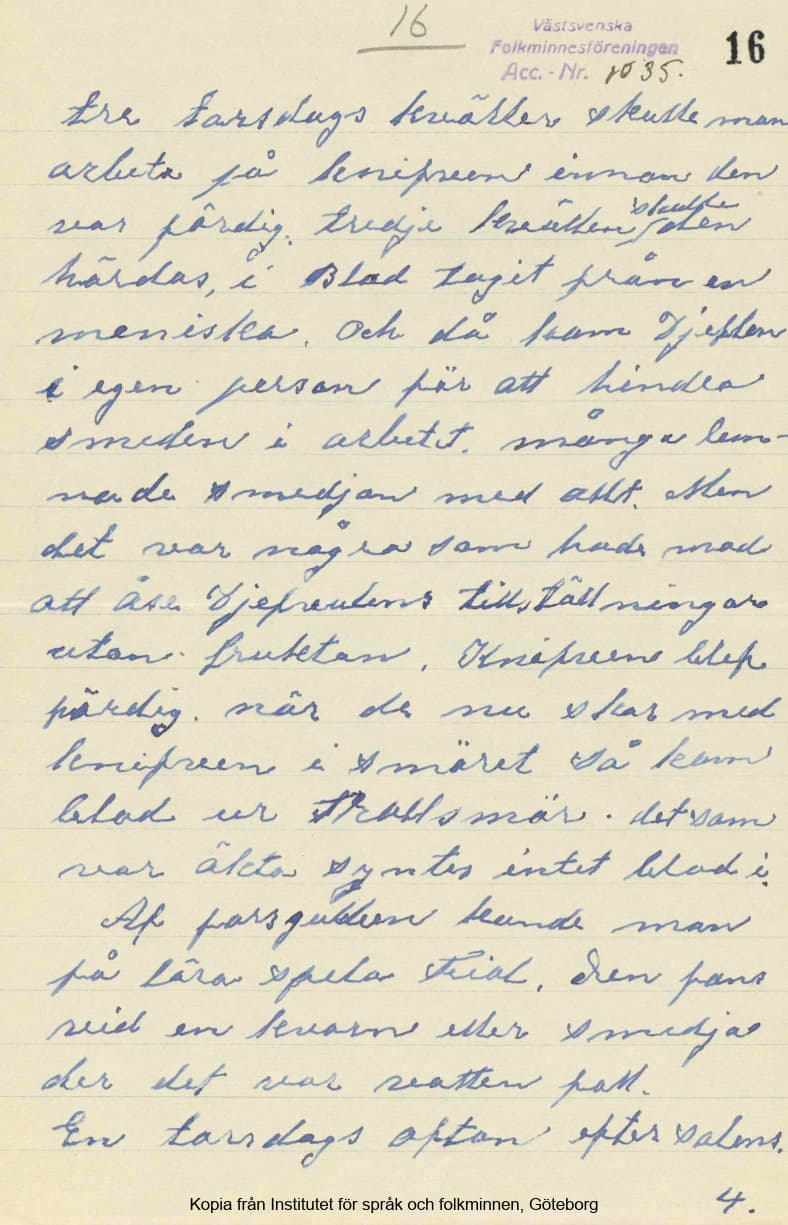 16
Västsvenska
Folkminnesföreningen
Acc.-Nr. 1035.
16
tre tarsdags kvätter skulle man
arbeta på knifven innan den
var färdig. tredje kvätten skulle den
härdas, i Blod taget från en
meniska. och då kom Djeflen
i egen person för att hindra
smeden i arbetet. många lem-
nade smedjan med allt. Men
det var några som hade mod
att åse Djefvulens tillställningar
utan fruktan. Knifven blef
färdig. når de nu skar med
knifven i smöret så kom
blod ur Trollsmör. det som
var äkta syntes intet blod i.
Af forsgubben kunde man
få lära spela Fiol. den fans
vid en kvarn eller smedja
der det var vatten fall.
En torsdags afton efter solens.
4.
Kopia från Institutet för språk och folkminnen, Göteborg